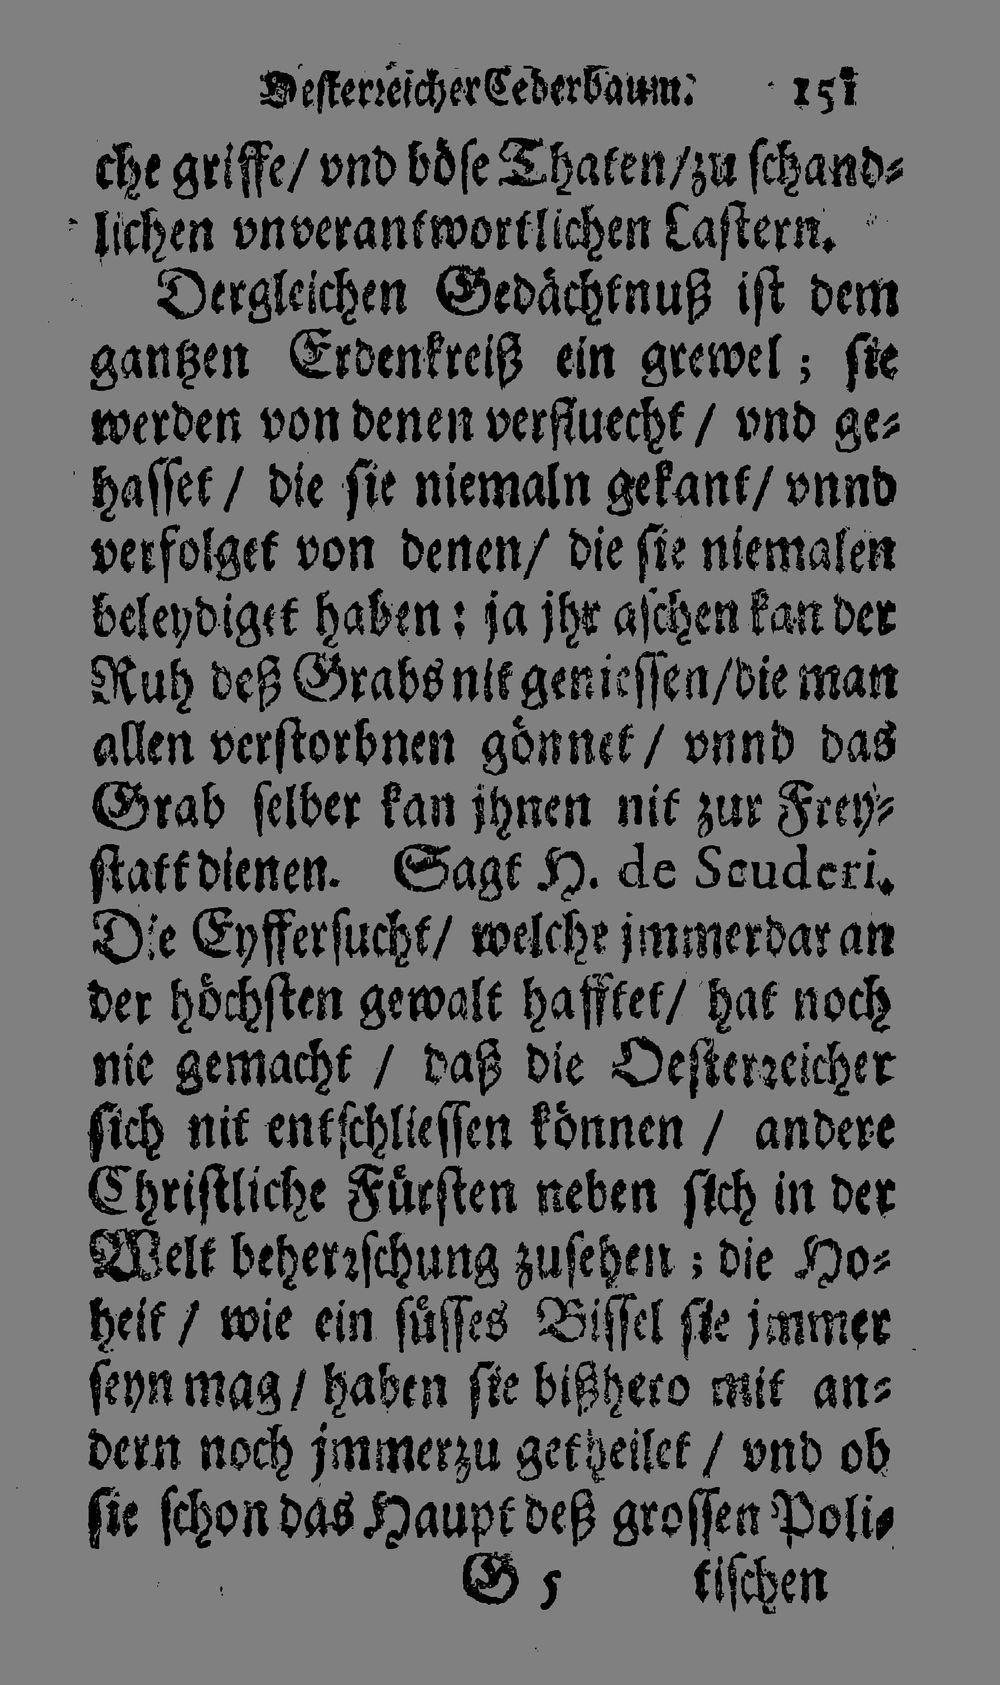 Oesterꝛeicher Cederbaum. 151
che griffe/ vnd böse Thaten/ zu schand⸗
lichen vnverantwortlichen Lastern.
Dergleichen Gedächtnuß ist dem
gantzen Erdenkreiß ein grewel; sie
werden von denen verfluecht / vnd ge⸗
hasset / die sie niemaln gekant/ vnnd
verfolget von denen/ die sie niemalen
beleydiget haben: ja jhr aschen kan der
Ruh deß Grabs nit geniessen/ die man
allen verstorbnen gönnet / vnnd das
Grab selber kan jhnen nit zur Frey⸗
statt dienen. Sagt H. de Scuderi.
Die Eyffersucht/ welche jmmerdar an
der höchsten gewalt hafftet/ hat noch
nie gemacht / daß die Oesterꝛeicher
sich nit entschliessen können / andere
Christliche Fürsten neben sich in der
Welt beherꝛschung zusehen; die Ho⸗
heit / wie ein süsses Bissel sie jmmer
seyn mag / haben sie bißhero mit an⸗
dern noch jmmerzu getheilet / vnd ob
sie schon das Haupt deß grossen Poli⸗
G 5 tischen